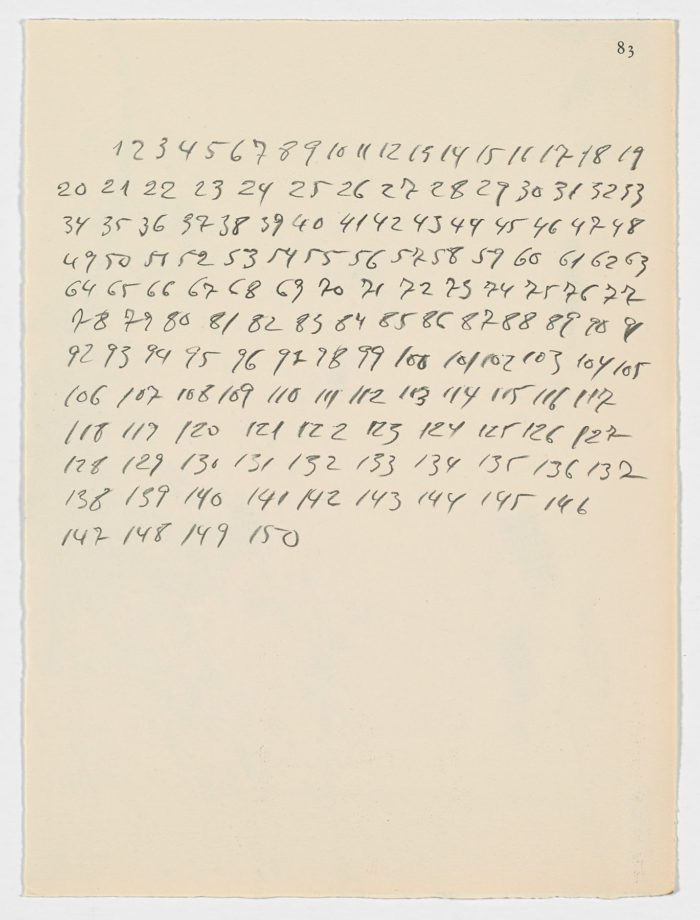 83
1 2 3 4 5 6 7 8 9 10 11 12 13 14 15 16 17 18 19
20 21 22 23 24 25 26 27 28 29 30 31 32 33
34 35 36 37 38 39 40 41 42 43 44 45 46 47 48
49 50 51 52 53 54 55 56 57 58 59 60 61 62 63
64 65 66 67 68 69 70 71 72 73 74 75 76 77
78 79 80 81 82 83 84 85 86 87 88 89 90 91
92 93 94 95 96 97 98 99 100 101 102 103 104 105
106 107 108 109 110 111 112 113 114 115 116 117
118 119 120 121 122 123 124 125 126 127
128 129 130 131 132 133 134 135 136 137
138 139 140 141 142 143 144 145 146
147 148 149 150